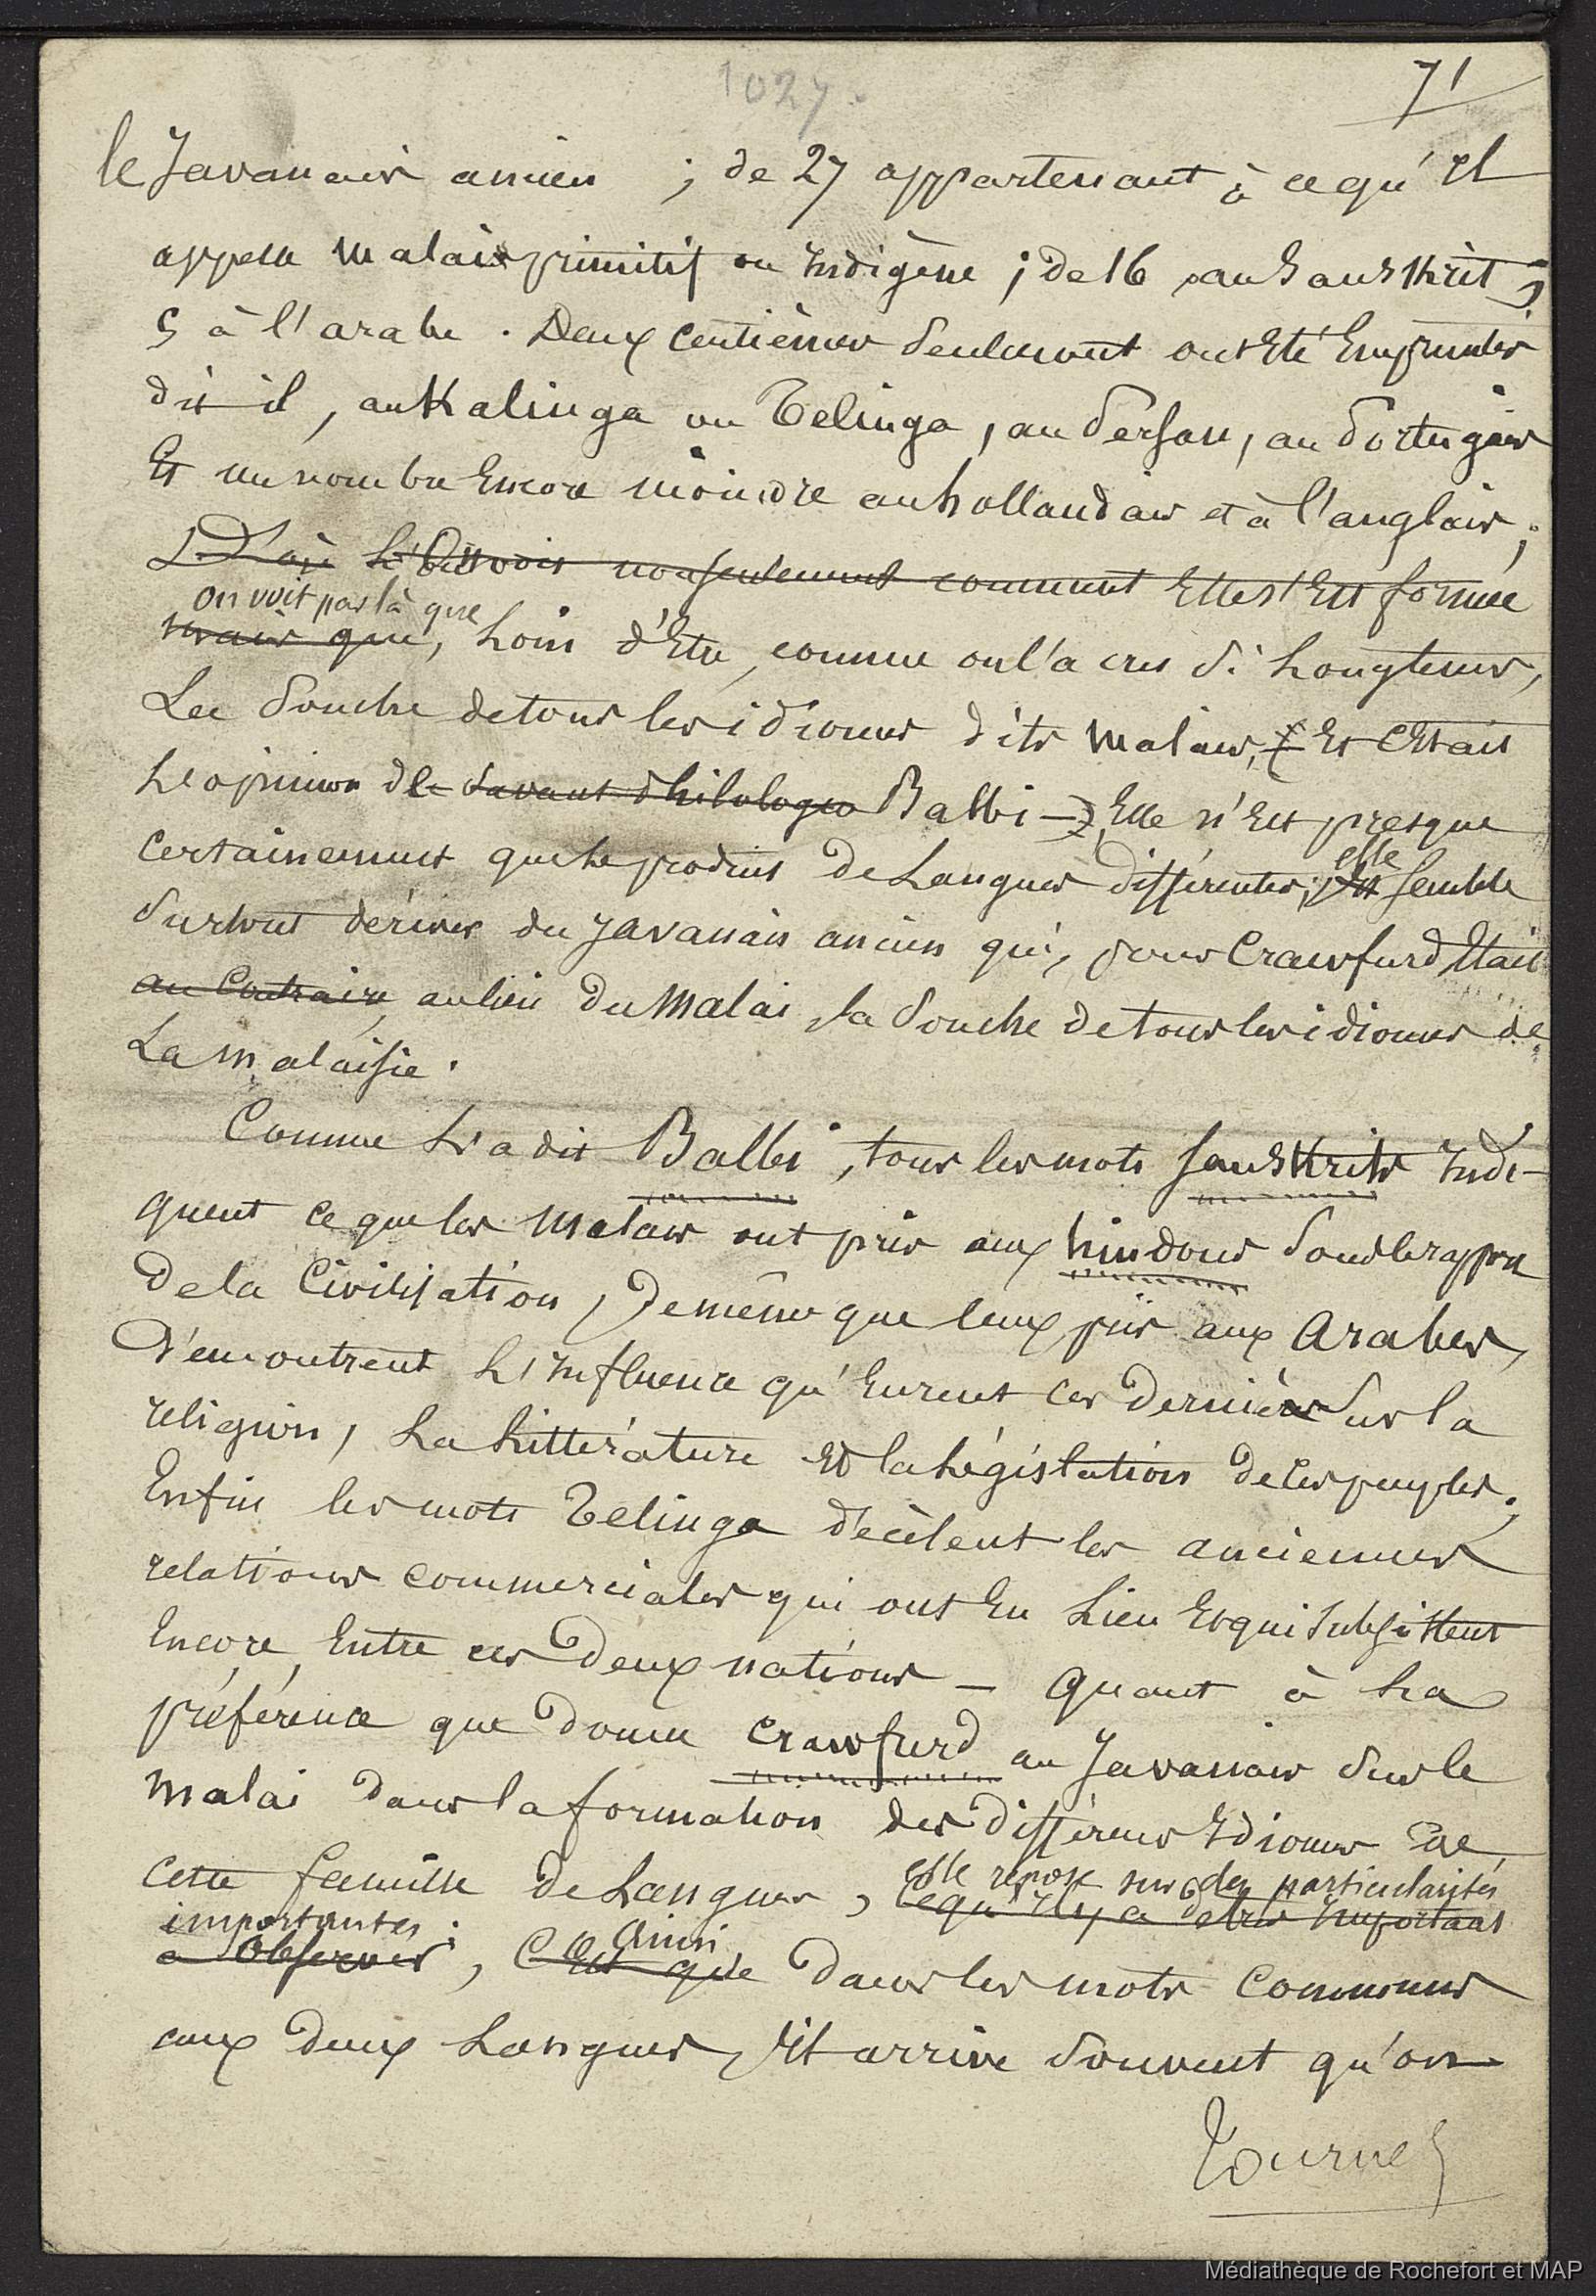 1027.
71
le Javanais ancien ; de 27 appartenant à ce qu'il
appelle malais primitif ou indigène ; de 16 au Sanskrit ;
5 à l'arabe . Deux centièmes seulement ont été empruntés
dit-il, au Kalinga ou Telinga, au Persan, au Portugais
Et un nombre Encore moindre au hollandais et à l'anglais ;
D'où l'on voit non seulement comment Elle s'Est formée
on voit par là que
mais que, Loin d'Etre, comme on l'a cru si Longtems,
La Souche de tous les idiomes dits Malais, ( Et c'Etait
L'opinion de Savant Philologue Balbi -) Elle n'Est presque
elle
certainement que le produit de Langues différentes ; Et semble
Surtout dériver du Javanais ancien qui, pour Crawfurd Etait
au Contraire, au lieu du Malai, la Souche de tous les idiomes de
La malaisie .
Comme L'a dit Balbi, tous les mots Sanskrits indi-
quent ce que les Malais ont pris aux hindous Sous le rapport
De la Civilisation, De même que ceux pris aux Arabes,
Démontrent L'influence qu'Eurent ces Derniers Sur la
religion, La Littérature Et la Législation de ces peuples ;
Enfin les mots Telinga décèlent les anciennes
relations commerciales qui ont Eu Lieu Et qui Subsistent
Encore, Entre ces Deux nations - Quant à La
préférence que donne Crawfurd au Javanais Sur le
Malai dans la formation des différens Idiomes de
elle repose sur des particularités
Cette famille de Langues, Ce qu'il y a de très Important
importantes ; Ainsi
a Observer, C'Est que Dans les mots Communs
aux deux Langues, Il arrive Souvent qu'on
Tournez
Médiathèque de Rochefort et MAP